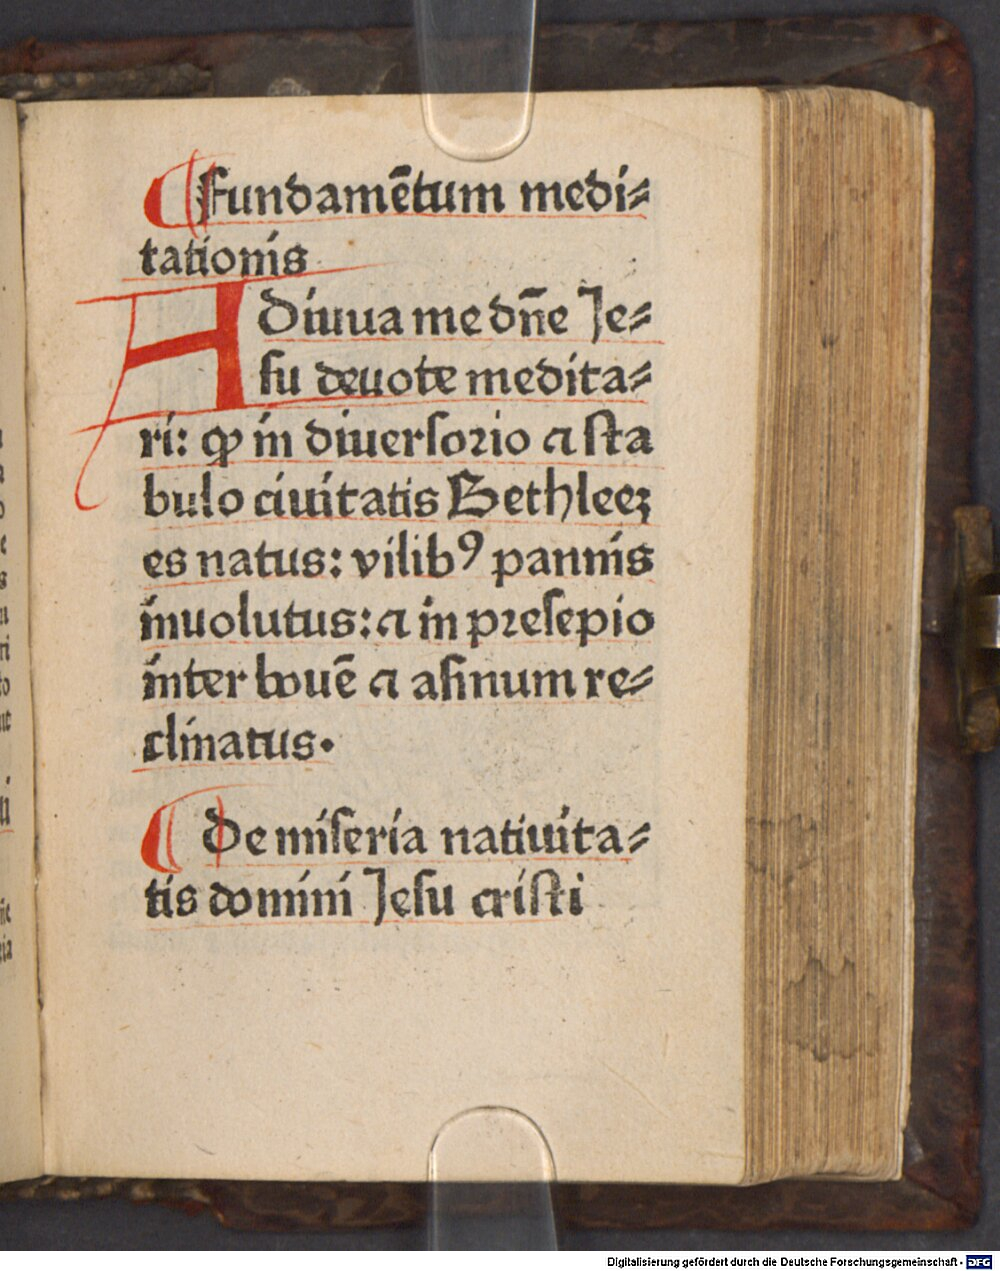 ¶ Fundamētum medi⸗
tationis
Adiuua me dn̄e Je⸗
ſu deuote medita⸗
ri: ꝙ in diuerſorio ⁊ ſta
bulo ciuitatis Bethleeꝫ
es natus: vilibꝰ pannis
inuolutus: ⁊ in preſepio
inter bouē ⁊ aſinum re⸗
clinatus.
¶ De miſeria natiuita⸗
tis domini Jeſu criſti
Digitalisierung gefördert durch die Deutsche Forschungsgemeinschaft - DFG